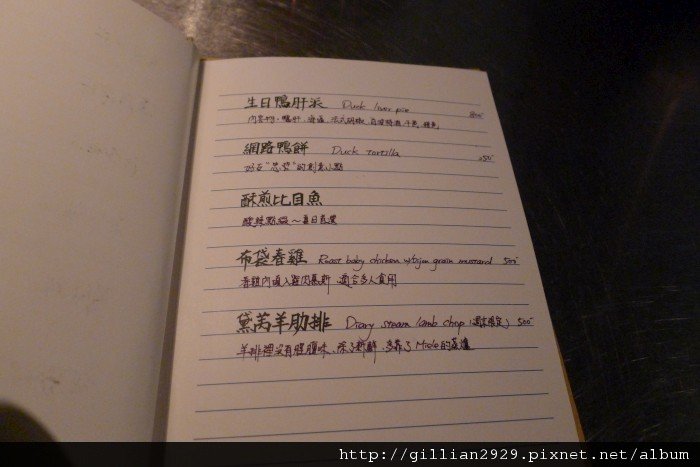 生日鴨肝派 Duck liver pie 800
內容物:鴨肝、
網路鴨餅 Duck Tortilla 250
好在"芯蔥"的創意小點
酥煎比目魚
酸辣點綴~夏日首選
布袋春雞 Roast baby chicken w/ dijon grain mustard 500
春雞內填入雞肉慕斯 適合多人食用
黛芮羊肋排 Diary steam lamb chop (週末限定) 500
羊排裡沒有腥羶味、除了新鮮、多靠了Miele的蒸爐
http://gillian2929.pixnet.net/album